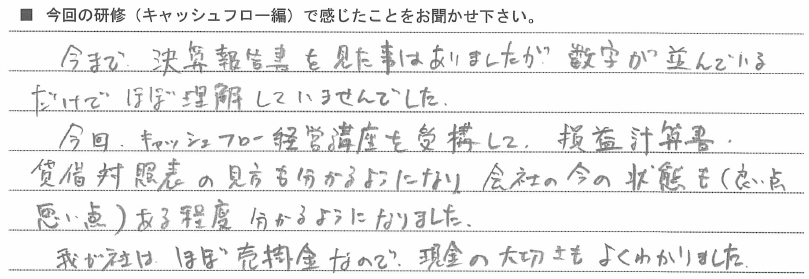 ■ 今回の研修（キャッシュフロー編）で感じたことをお聞かせ下さい。
今まで、決算報告書を見た事はありましたが、数字が並んでいる
だけでほぼ理解していませんでした。
今回、キャッシュフロー経営講座を受構して、損益計算書・
貸借対照表の見方も分かるようになり、会社の今の状態も（良い点
悪い点）ある程度分かるようになりました。
我が社は、ほぼ売掛金なので、現金の大切さもよくわかりました。